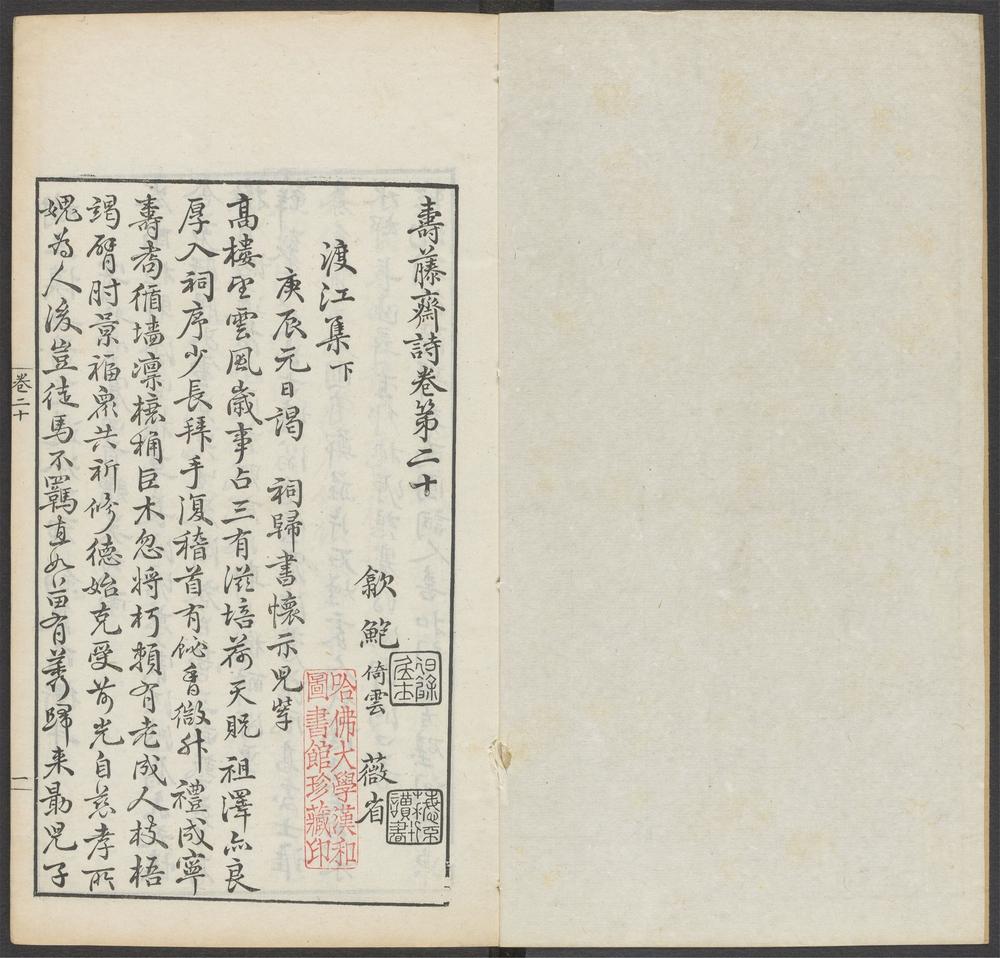 壽藤齋詩卷第二十
歙鮑倚雲 薇省
渡江集下
庚辰元日謁 祠歸書懷示兒
高樓望雲風歲事占三有滋培荷天貺祖澤亦良
厚入祠序少長拜手復稽首有飶香徹升禮成寧
壽耇循墻凜榱桷巨木忽將朽賴有老成人枝梧
竭臂肘景福衆共祈修德始克受前光自慈孝所
媿為人後豈徒馬不羈直如苗有莠歸来勗兒子
卷二十
一
哈佛大學漢和
圖書館珍藏印